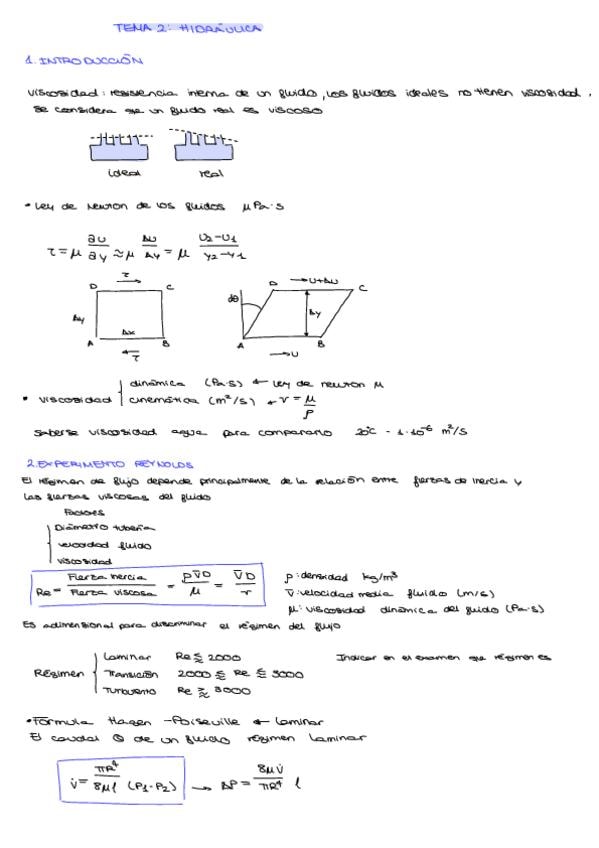 TEMA 2: HIDRÁULICA
1. INTRODUCCIÓN
Viscosidad: resistencia interna de un fluido, los fluidos ideales no tienen viscosidad.
Se considera que un fluido real es viscoso
ideal real
• Ley de Newton de los fluidos μ Pa·s
τ = μ ∂U/∂y ≈ μ ΔU/Δy = μ (U2-U1)/(y2-y1)
τ
D C
Δy
Δx
A B
τ
dθ
D → U+ΔU
C
Δy
A B
→ U
• Viscosidad
dinámica (Pa·s) ← Ley de newton μ
cinemática (m²/s) ← r = μ/ρ
Saberse viscosidad agua para compararlo 20°C - 1·10⁻⁶ m²/s
2. EXPERIMENTO REYNOLDS
El régimen de flujo depende principalmente de la relación entre fuerzas de inercia y
las fuerzas viscosas del fluido
Factores
Diámetro tubería
velocidad fluido
viscosidad
Re = Fuerza inercia / Fuerza viscosa = ρV̄D/μ = V̄D/r
ρ: densidad kg/m³
V̄: velocidad media fluido (m/s)
μ: viscosidad dinámica del fluido (Pa·s)
Es adimensional para discriminar el régimen del flujo
Régimen
Laminar Re ≲ 2000
Transición 2000 ≲ Re ≲ 3000
Turbulento Re ≳ 3000
Indicar en el examen que régimen es
• Fórmula Hagen - Poiseville ← Laminar
El caudal Q de un fluido régimen Laminar
V̇ = πR⁴/8μl (P1-P2) → ΔP = 8μV̇/πR⁴ l